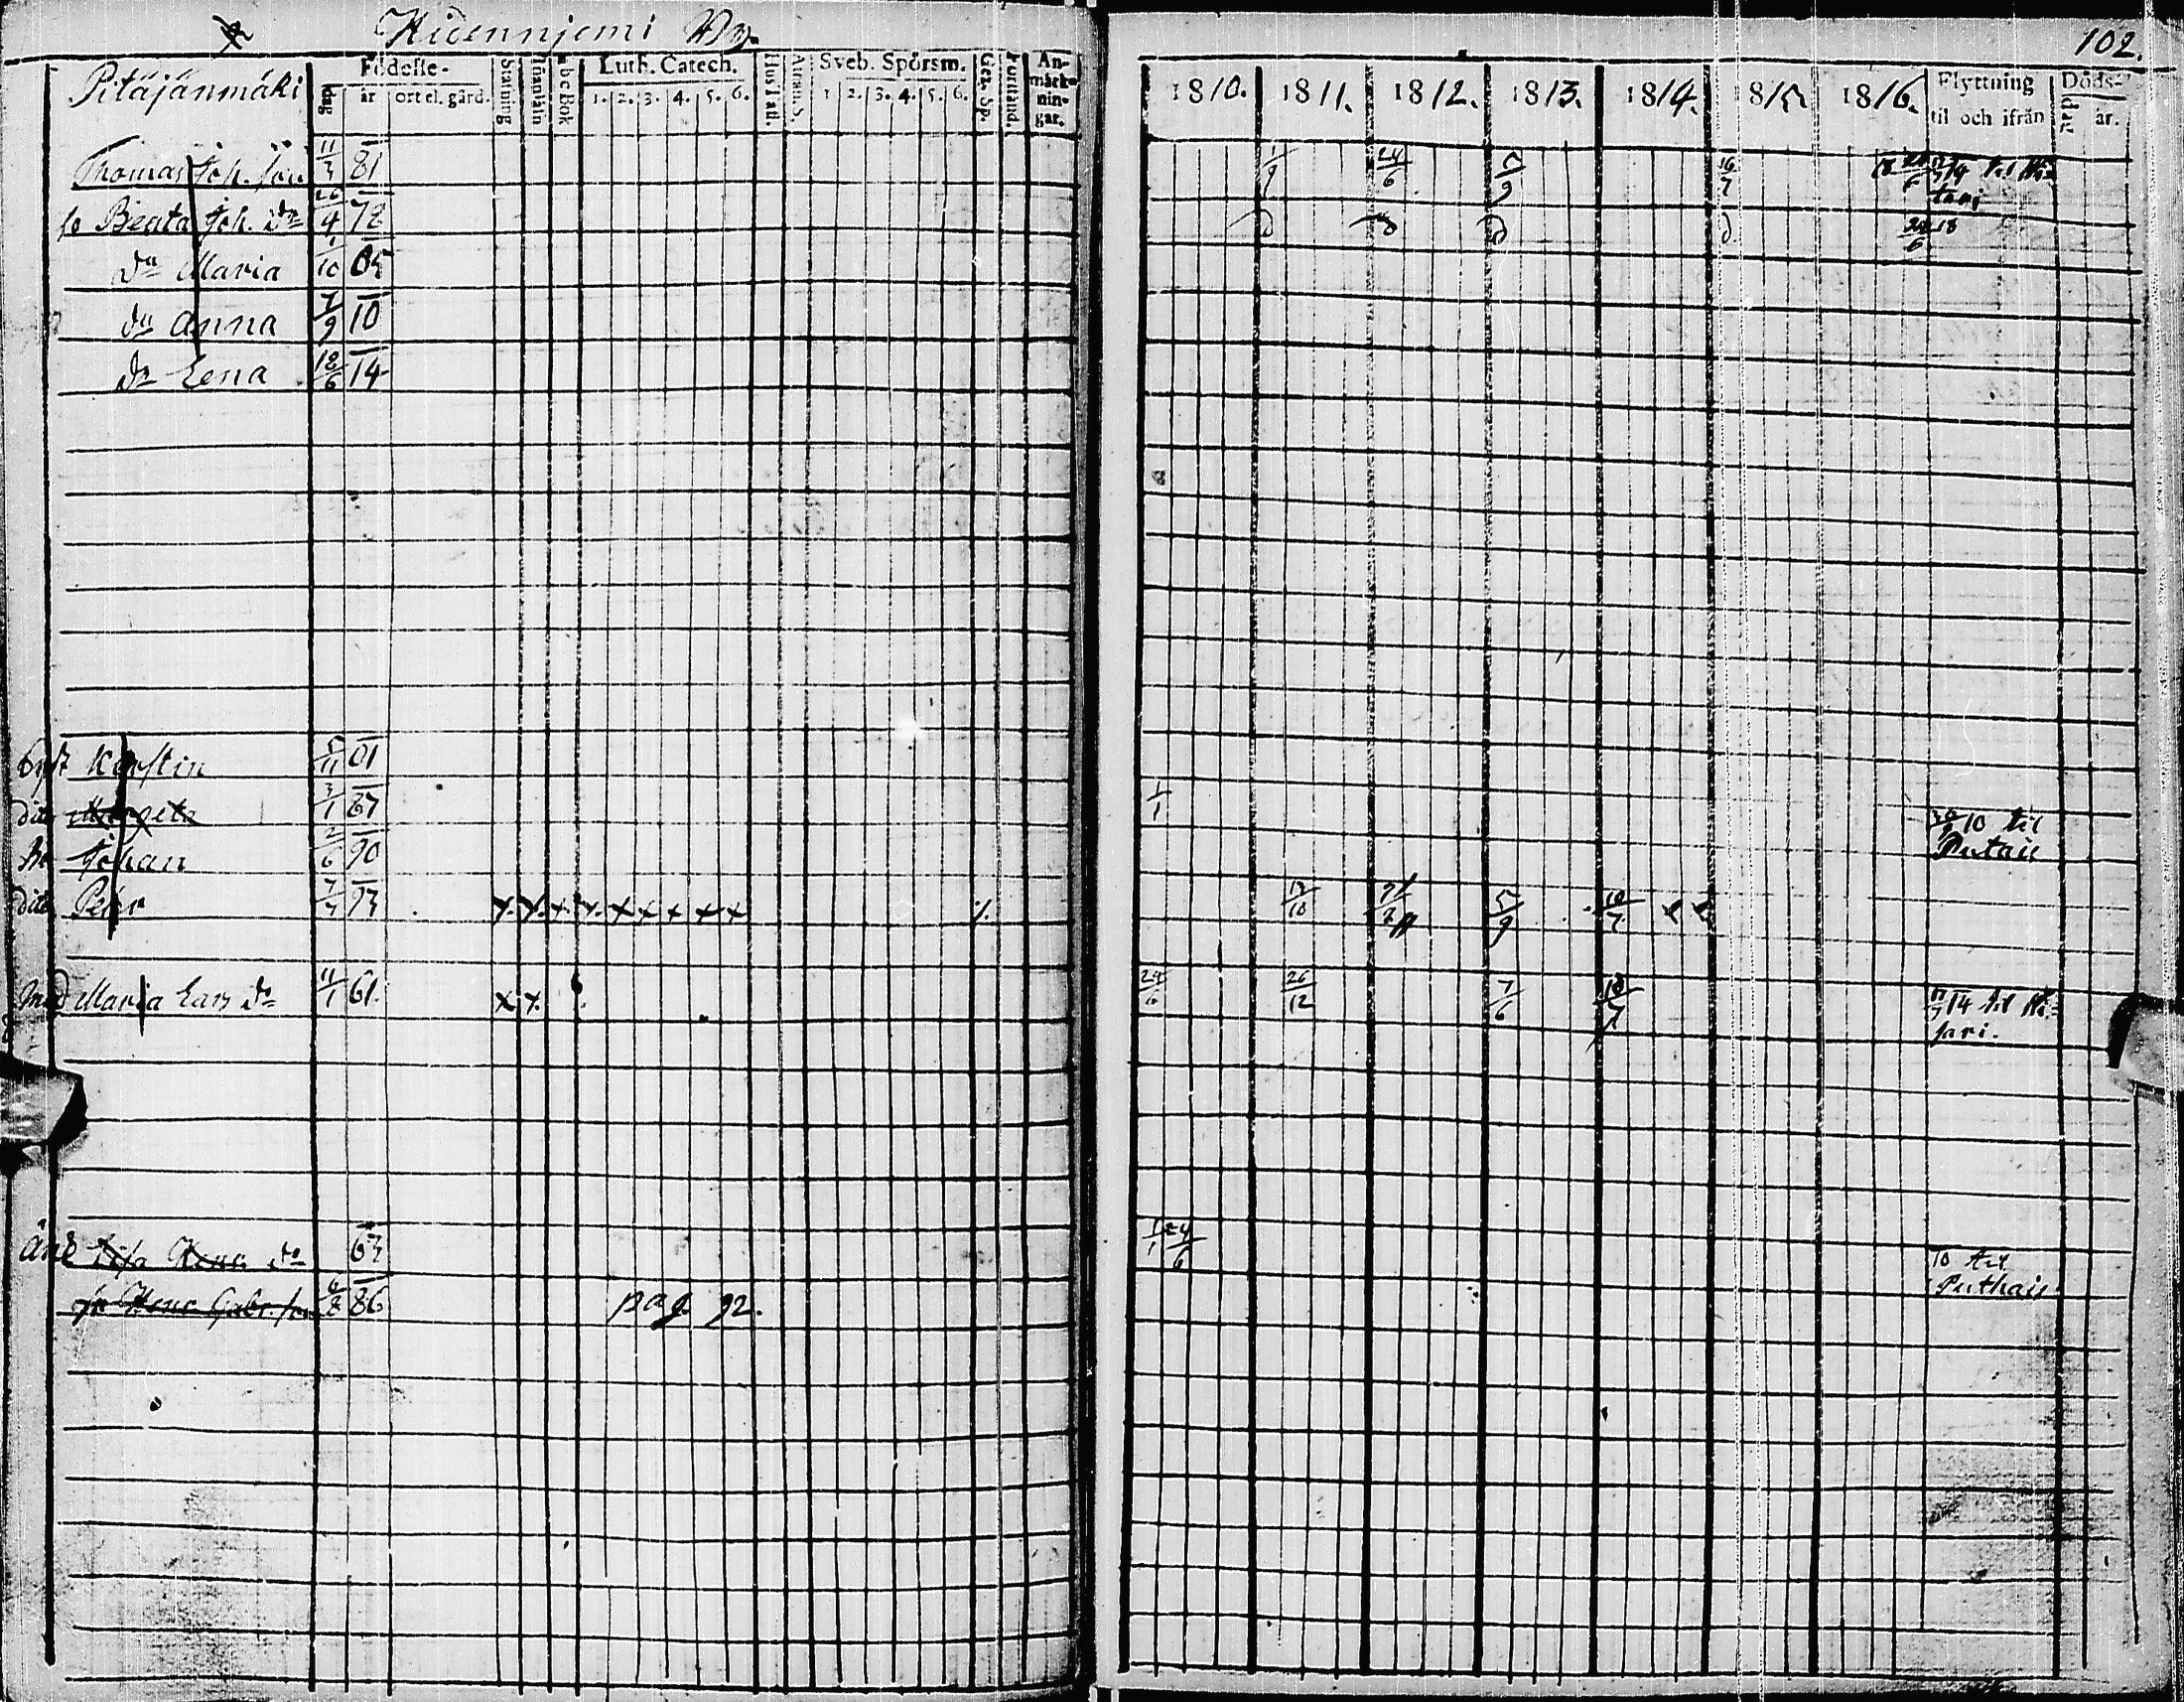 Hidenniemi By.
102.
Pitäjänmäki
Födelse-
dag
år
ort el. gård.
Stafning
Innanläsn
Abc Bok
Luth. Catech.
1. 2. 3. 4. 5. 6.
Hus Tafl.
Athan. S.
Sveb. Spörsm.
1 2. 3. 4. 5. 6.
Gez. Sp.
Förstånd.
An-
märk-
nin-
gar.
1810. 1811. 1812. 1813. 1814. 1815. 1816.
Flyttning
til och ifrån
Döds-
dag år.
Thomas Joh. son 11/3 81 1/9 24/6 5/9 16/7
Beata Joh. dr 26/4 78 24/6 18
dr Maria 1/10 05
dr Anna 7/9 10
dr Lena 18/6 14
Kerstin 5/11 01
dito Margeta 3/1 87 1/1 10 til
Putais
Johan 2/6 90
dito Petter 7/7 93 x x x x x x x x x 5/9 10/7 x x
Maria Lars dr 11/1 61. x x 24/6 26/12 7/6 10/7 14 til
sari.
Änk Lisa Henr. dr 63 1/1 24/6 10 til
Puthais
Henr Gabr. son 6/8 86 pag 92.